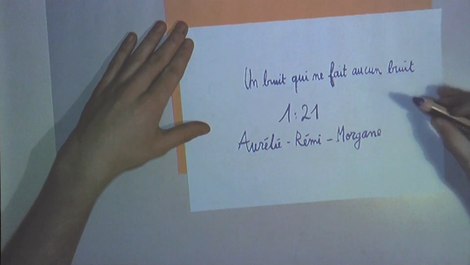 Un bruit qui ne fait aucun bruit
1:21
Aurélie - Rémi - Morgane